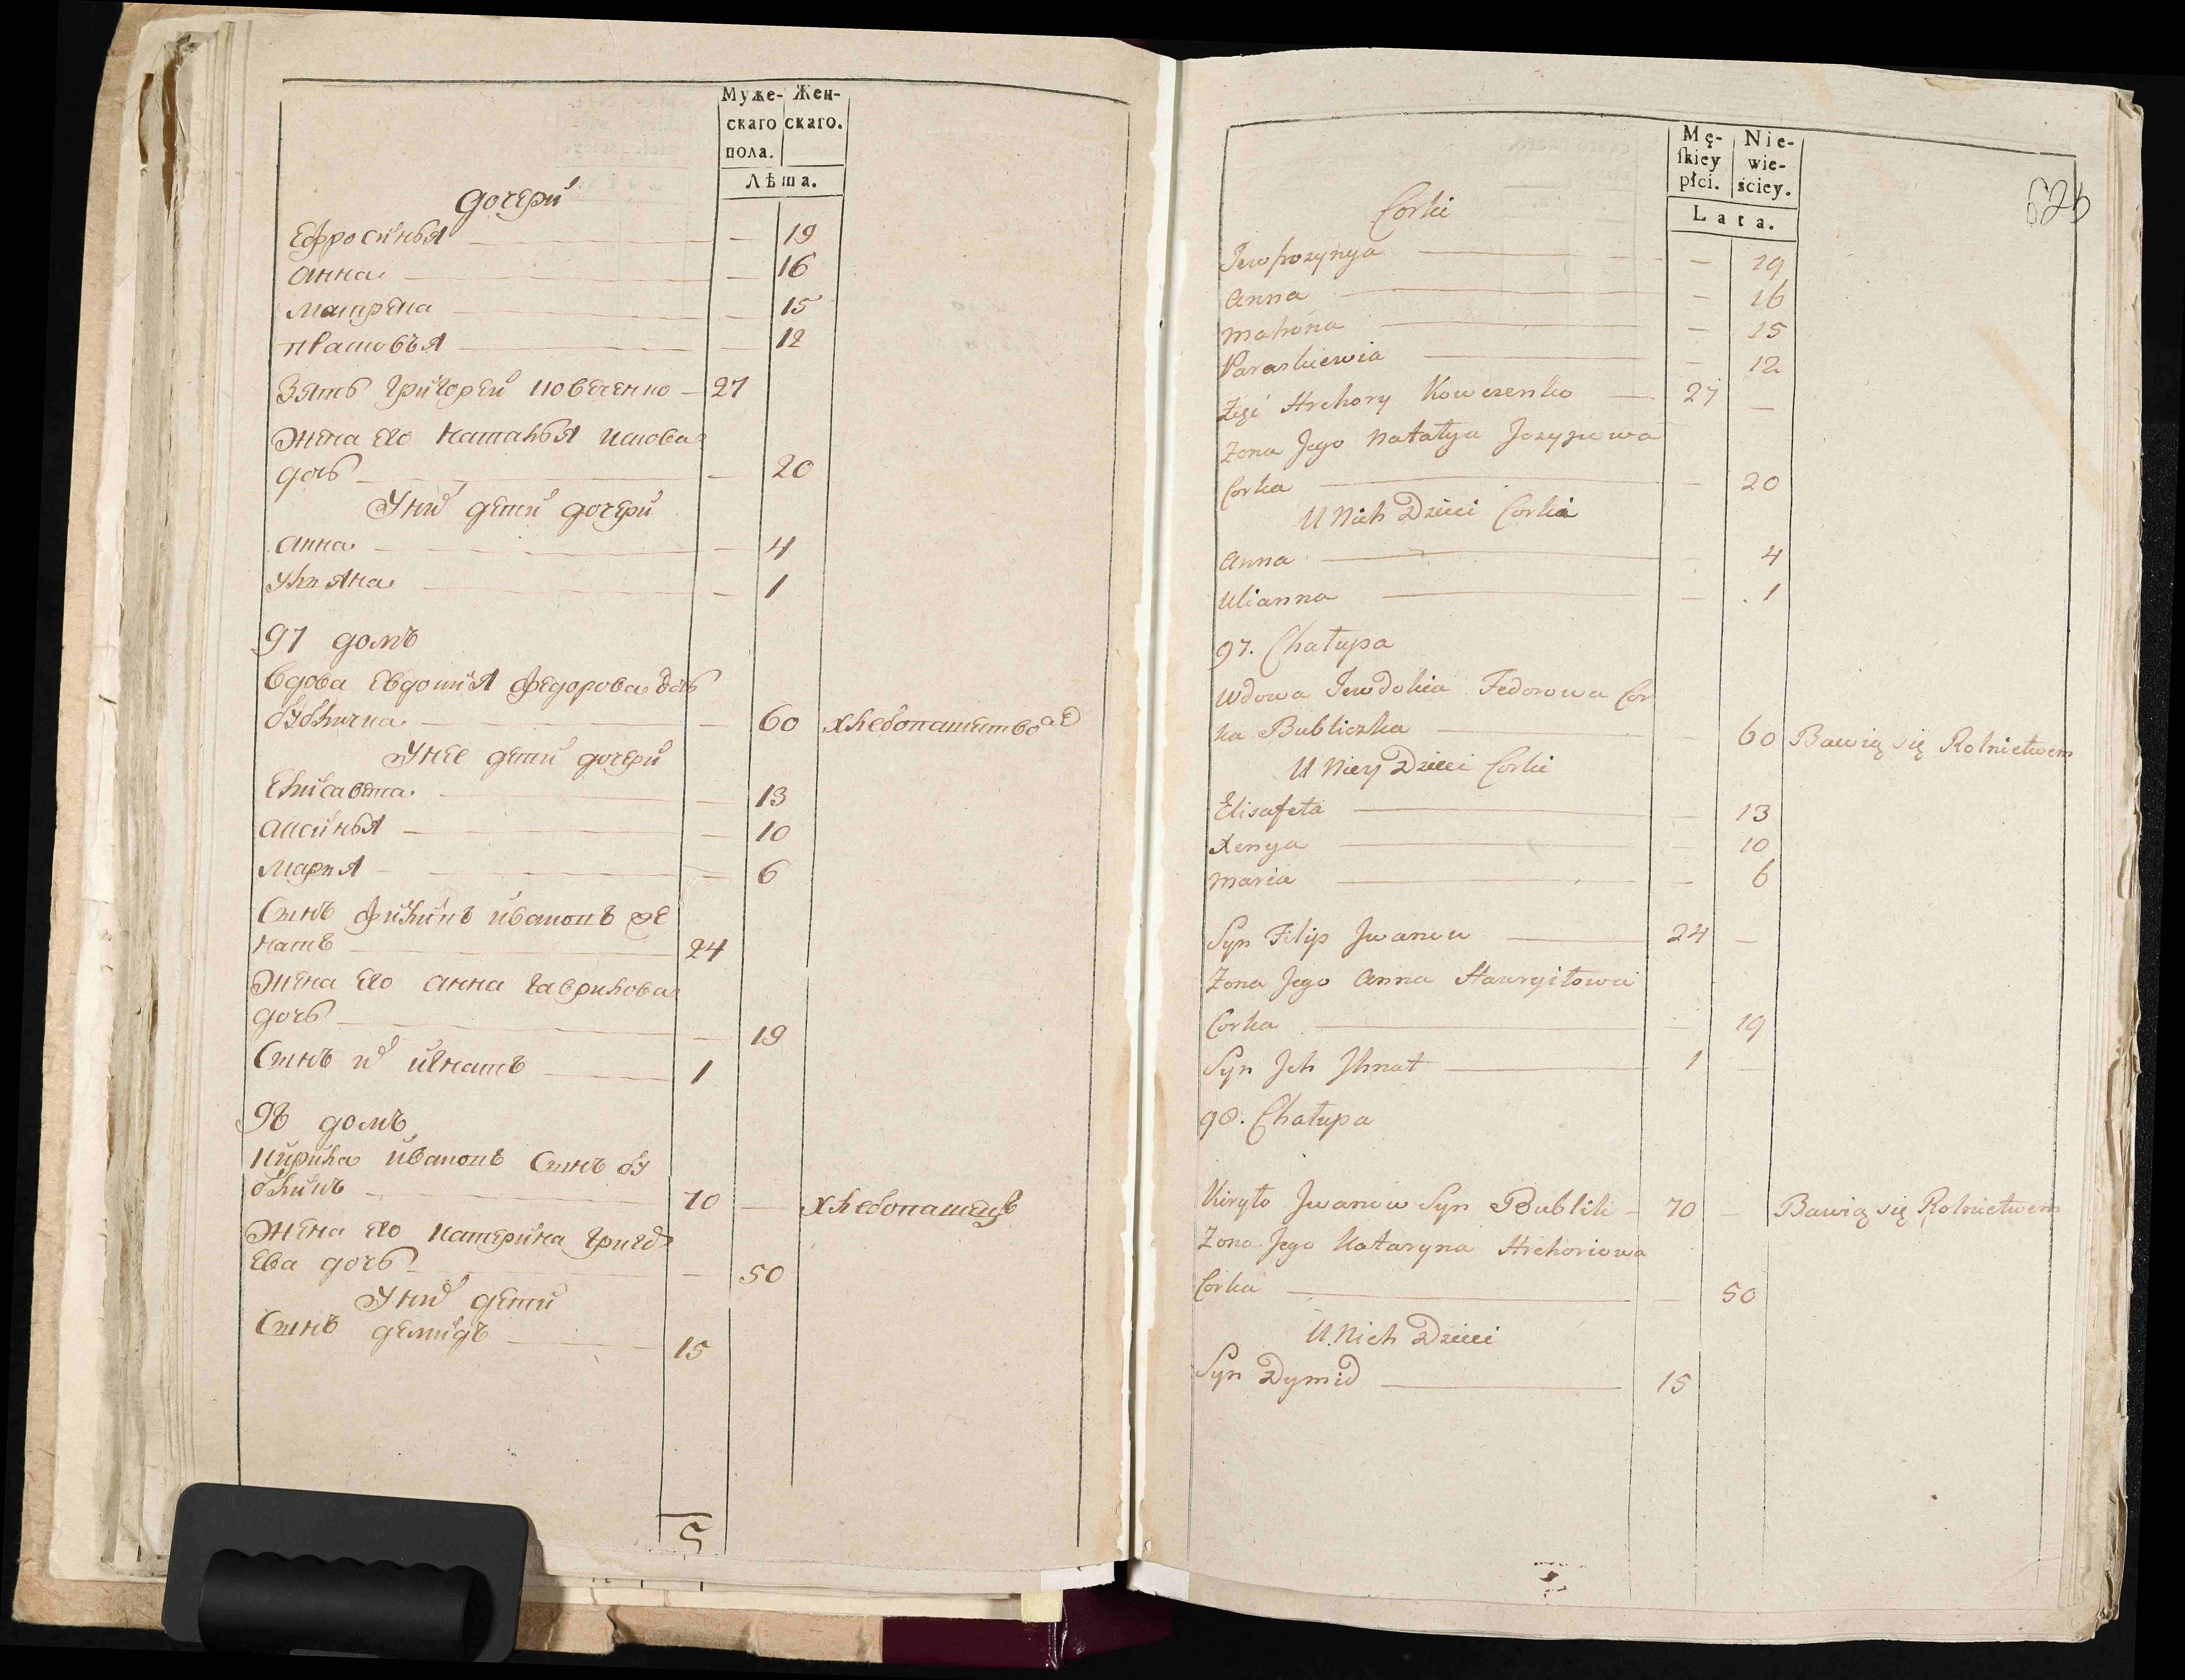 Муже- Жен-
скаго скаго.
пола.
Лѣта.
дочери
Ефросинья — — 19
Анна — — 16
Матрена — — 15
— — 12
Зять Григорей Ковченко — 27
Жена его Наталья
дочь — — 20
У них дети дочери
Анна — — 4
Улияна — — 1
97 домъ
Вдова Евдокия Федорова дочь
бублична — — 60 хлебопашество
У нее дети дочери
Елисавета — — 13
Аксинья — — 10
Мария — — 6
Сынъ Филипъ Ивановъ же
натъ — 24
Жена его Анна Гаврилова
дочь — — 19
Сынъ их Игнатъ — 1
98 домъ
Кирила Ивановъ Сынъ бу
бликъ — 70 — хлебопашецъ
Жена его Катерина Григор
ева дочь — — 50
У них дети
Сынъ Демидъ — 15
5
Mę- Nie-
skiey wie-
płci. ściey.
Lata.
626
Corki
Jewfrozynya — — 19
Anna — — 16
Matrona — — 15
Paraskiewia — — 12
Zięć Hrehory Kowczenko — 27 —
Zona Jego Natalya Jozypowa
Corka — — 20
U Nich Dzieci Corki
Anna — — 4
Ulianna — — 1
97. Chałupa
Wdowa Jewdokia Fedorowa Cor
ka Bubliczka — — 60 Bawią się Rolnictwem
U Niey Dzieci Corki
Elisafeta — — 13
Xenya — — 10
Maria — — 6
Syn Filip Jwanow — 24 —
Zona Jego Anna Hawryiłowa
Corka — 19
Syn Jch Jhnat — 1 —
98. Chałupa
Kiryło Jwanow Syn Bublik — 70 — Bawią się Rolnictwem
Zona Jego Kataryna Hrehoriowa
Corka — — 50
U Nich Dzieci
Syn Dymid — 15